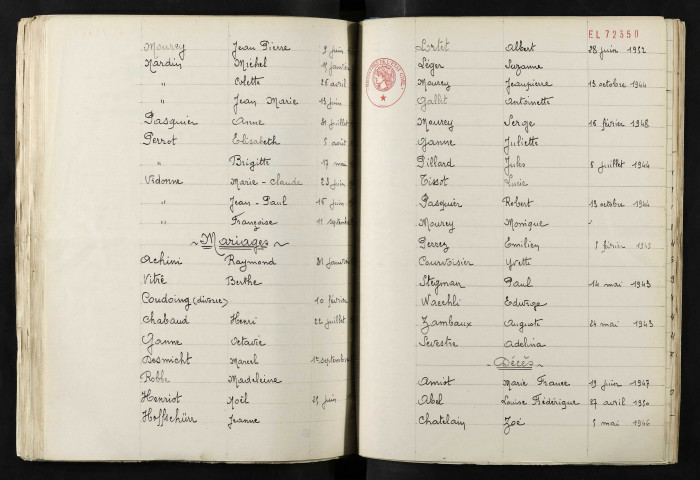 Mourey Jean Pierre 9 juin
Nardin Michel 17 janvier
" Colette 26 avril
" Jean Marie 13 juin
Pasquier Anne 31 juillet
Perrot Elisabeth 5 août
" Brigitte 17 mai
Vidonne Marie-Claude 23 juin
" Jean-Paul 16 juin
" Françoise 11 septembre
~ Mariages ~
Achini Raymond 31 janvier
Vitré Berthe
Coudoing (divorce) 10 février
Chabaud Henri 22 juillet
Ganne Octavie
Desmicht Marcel 1er septembre
Robbe Madeleine
Henriot Noël 25 juin
Hoffschürr Jeanne
EL 72350
Lortet Albert 28 juin 1952
Léger Suzanne
Mourey Jeanpierre 13 octobre 1944
Gallet Antoinette
Mourey Serge 16 février 1948
Ganne Juliette
Pillard Jules 8 juillet 1944
Tissot Lucie
Pasquier Robert 19 octobre 1944
Mourey Monique "
Perrez Emilien février
Courvoisier Yvette
Stegman Paul 14 mai 1943
Waechli Edwige
Zambaux Auguste 24 mai 1943
Sevestre Adelina
~ Décès ~
Amiot Marie France 19 juin 1947
Abel Louise Frédérique 27 avril 1950
Chatelain Zoé 5 mai 1946